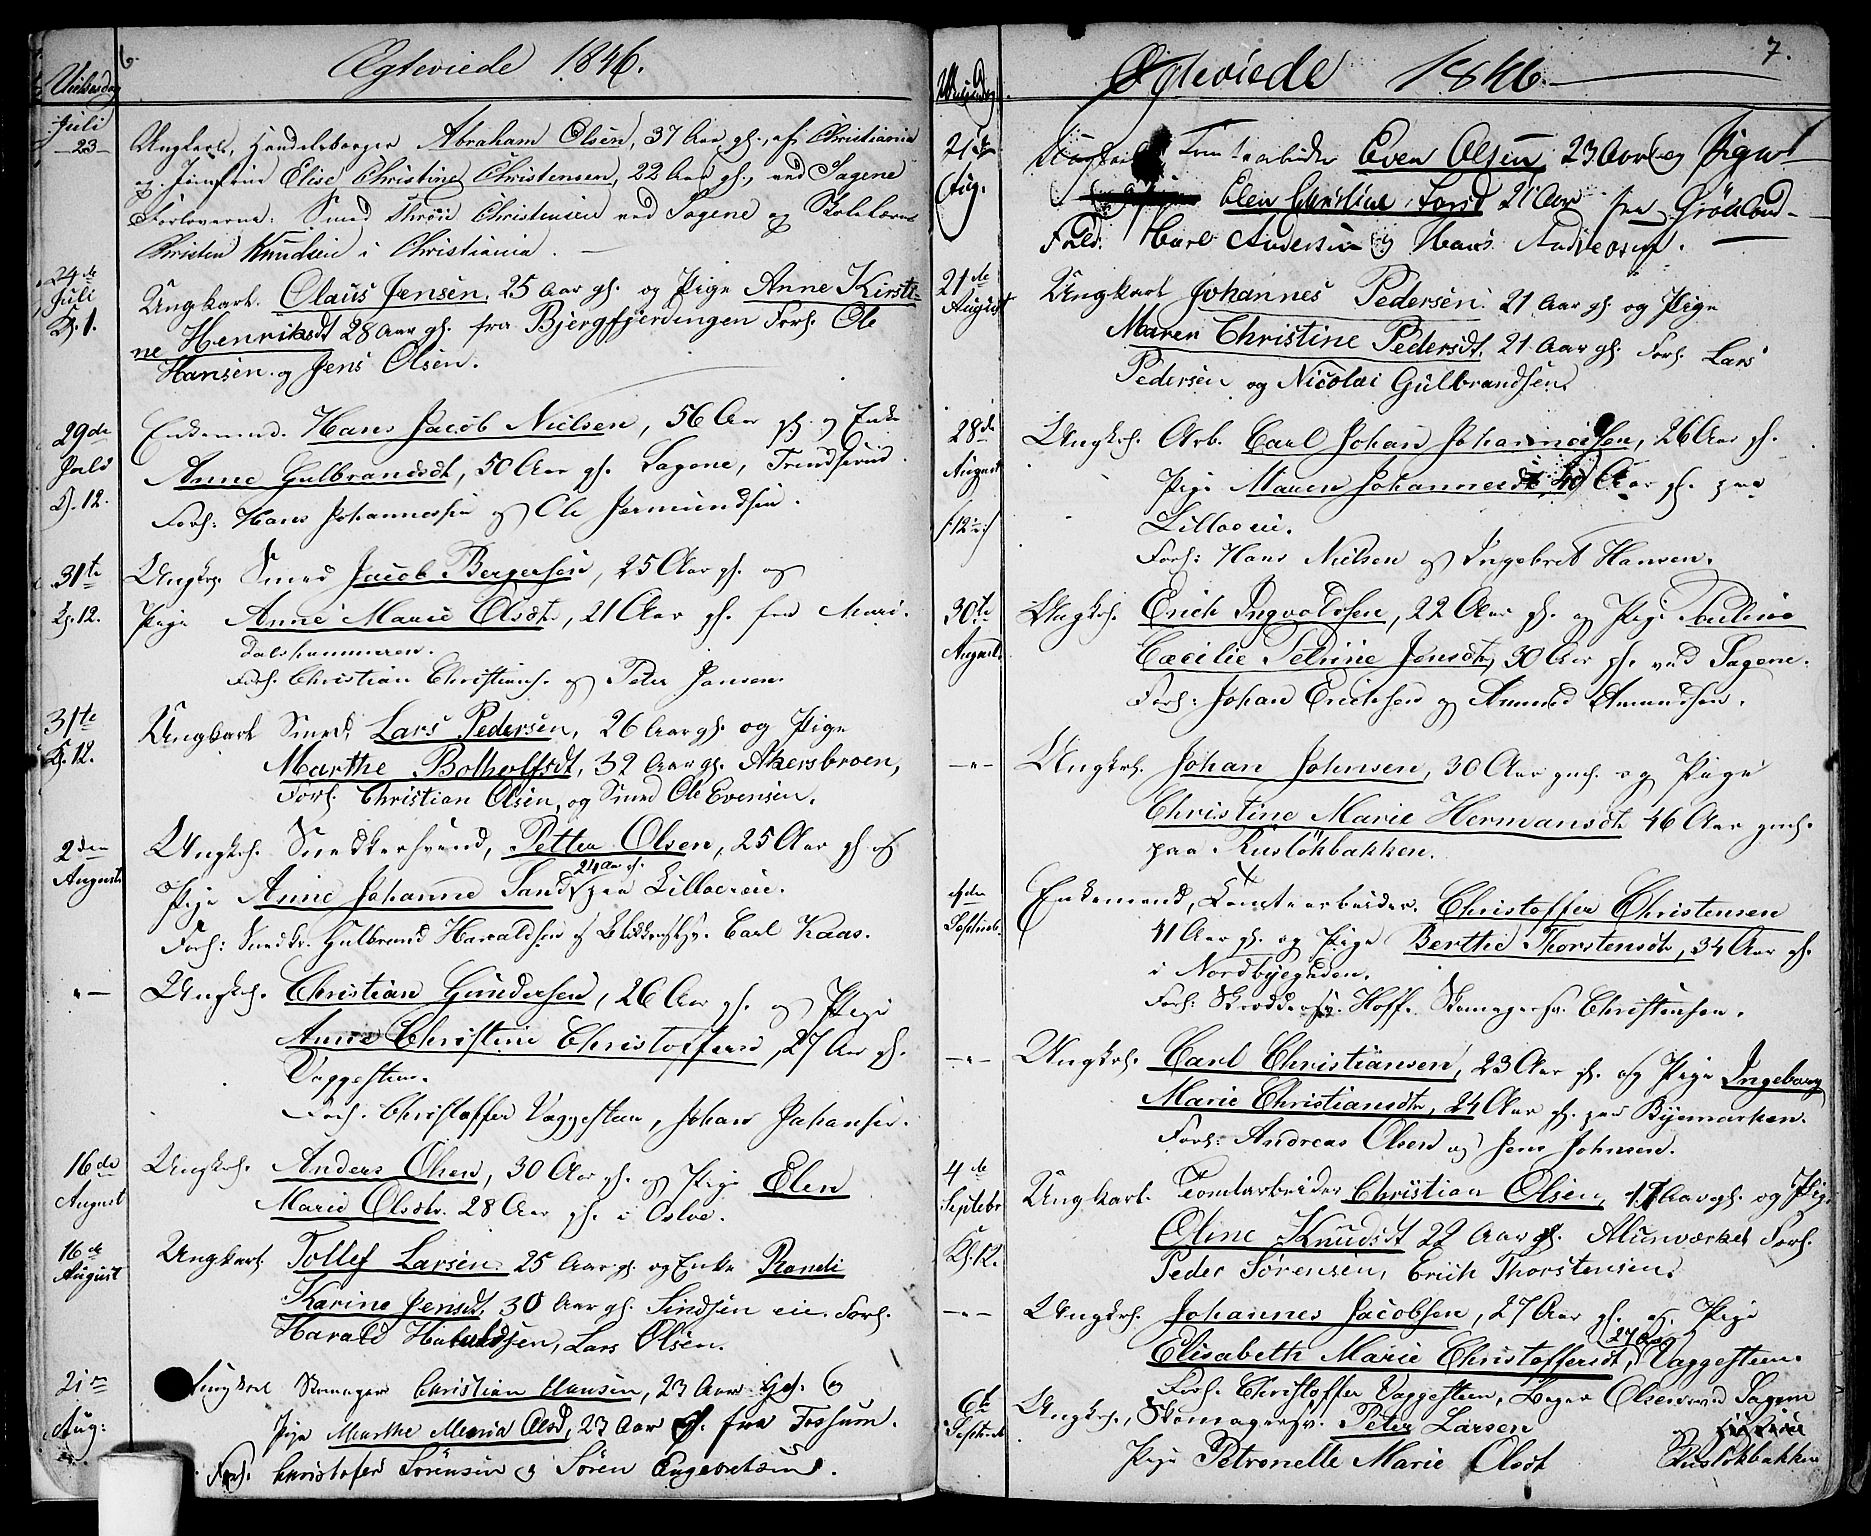 6.
Ægteviede 1846.
Vielsesdag
Juli
23
Ungkarl, Handelsborger Abraham Olsen, 37 Aar gl., af Christiania
og Jomfrue Elise Christine Christensen, 22 Aar gl., ved Sagene
Forloverne: Smed Christensen ved Sagene og
Christen Knudsen i Christiania.
24de
Juli
Kl. 1.
Ungkarl. Claus Jensen, 25 Aar gl. og Pige Anne Kirsti-
ne Henriksdt 28 Aar gl. fra Bjergfjerdingen Forl. Ole
Hansen og Jens Olsen.
29de
Juli
Kl. 12.
Enkemand. Hans Jacob Nielsen, 56 Aar gl. og Enke
Anne Gulbrandsdt, 50 Aar gl. Sagene,
Forl: Hans Johannessen og Ole Jermundsen.
31te
Kl. 12.
Ungkrl. Smed Jacob Bergersen, 25 Aar gl. og
Pige Anne Marie Olsdt, 21 Aar gl. fra Mari-
dalshammeren.
Forl. Christian Christians. og Peter Jansen.
31te
Kl. 12.
Ungkarl Smed, Lars Pedersen, 26 Aar gl. og Pige
Marthe Botholfsdt, 32 Aar gl. Akersbroen,
Forl. Christian Olsen, og Smed Ole Evensen.
2den
August
Ungkrl. Snedkersvend, Petter Olsen, 25 Aar gl og
24 Aar gl.
Pige Anne Johanne Sand paa Lilloeie.
Forl: Snedkr. Gulbrand Haraldsen og Carl Kaas.
-"-
Ungkrl. Christian Gundersen, 26 Aar gl. og Pige
Anne Christine Christoffersd, 27 Aar gl.
Vaggesteen.
Forl. Christoffer Vaggesteen, Johan Johansen.
16de
August
Ungkrl. Anders Olsen, 30 Aar gl. og Pige Elen
Marie Olsdtr. 28 Aar gl. i Osloe.
16de
August
Ungkarl. Tollef Larsen. 25 Aar gl. og Enke Randi
Karine Jensdt, 30 Aar gl. Sindsen eie. Forl.
Harald Haraldsen, Lars Olsen.
21de
Aug:
Ungkarl Skomager Christian Hansen, 23 Aar gl. og
Pige Marthe Maria Olsd, 23 Aar gl. fra Fossum.
Forl. Christofer Sörensen og Sören Engebretsen.
7.
Ægteviede 1846.
Vielsesdag
21de
Aug.
Ungkarl Tomtearbeider Even Olsen 23 Aar og Pigen
Elen Christine Larsd 21 Aar fra Grökland
Forl. Karl Andersen og Hans Andreasen.
21de
August
Ungkarl Johannes Pedersen. 21 Aar gl. og Pige
Maren Christine Pedersdt. 21 Aar gl. Forl. Lars
Pedersen og Nicolai Gulbrandsen.
28de
August
/:12:/
Ungkrl. Arb. Carl Johan Johannesen, 26 Aar gl.
Pige Maren Johannesdt 40 Aar gl. paa
Lilloeie.
Forl: Hans Nielsen og Ingebret Hansen.
30te
August.
Ungkrl. Erich Ingvaldsen, 22 Aar gl. og Pige Pauline
Cæcilie Petrine Jensdt, 30 Aar gl. ved Sagene.
Forl: Johan Erichsen og Amund Amundsen.
-"-
Ungkrl. Johan Johnsen, 30 Aar gml. og Pige
Christine Marie Hermansdt 46 Aar gml.
paa Rusløkbakken.
4de
Septemb.
Enkemand, Tomtearbeider. Christoffer Christensen
41 Aar gl. og Pige Berthe Thorstensdt, 34 Aar gl.
i Nordbyegaden.
Forl: Skreddersv. Hoff. Skomagersv. Christensen.
-"-
Ungkrl. Carl Christiansen, 23 Aar gl. og Pige Ingeborg
Marie Christiansdt, 24 Aar gl. paa Bymarken.
Forl: Andreas Olsen og Jens Johnsen.
4de
Septebr
Kl. 12.
Ungkarl. Tomtarbeider Christian Olsen, Aar gl. og Pige
Oline Knudsdt 22 Aar gl. Alunværket Forl.
Peder Sørensen, Erich Thorstensen.
-"-
Ungkrl. Johannes Jacobsen, 27 Aar gl. og Pige
27 Aar
Elisabeth Marie Christoffersdt, Vaggesteen.
Forl. Christoffer Vaggesteen, Olsen ved Sagene
6te
Septemb
Ungkrl., Skomagersv. Peter Larsen
Pige Petronelle Marie Olsdt
Rusløkbakken